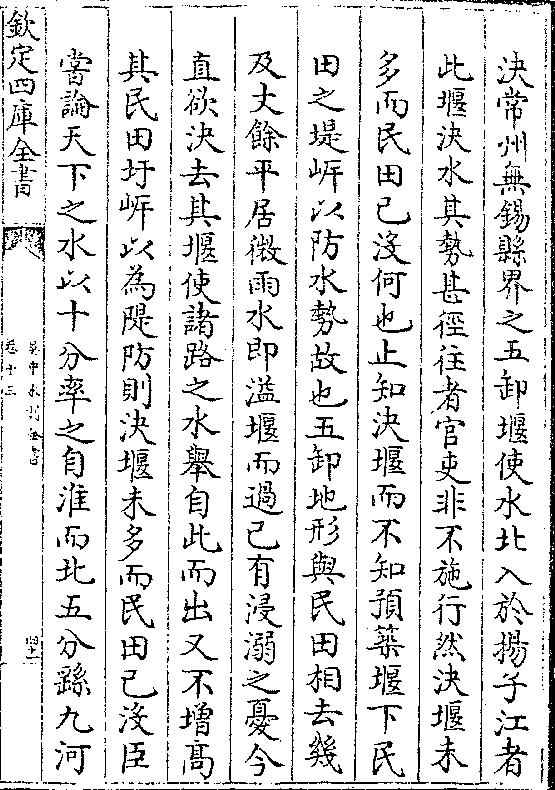 決常州無錫縣界之五卸堰使水北入於揚子江者
此堰決水其勢甚徑往者官吏非不施行然決堰未
多而民田已沒何也止知決堰而不知預築堰下民
田之堤岸以防水勢故也五卸地形與民田相去幾
及丈餘平居微雨水即溢堰而過已有浸溺之憂今
直欲決去其堰使諸路之水舉自此而出又不增髙
其民田圩岸以為隄防則決堰未多而民田已沒臣
嘗論天下之水以十分率之自淮而北五分繇九河
欽定四庫全書
吳中水利全書
卷十三